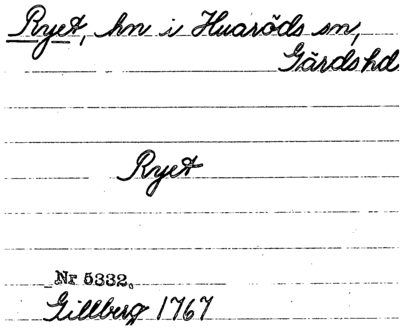 Ryet, hn i Huaröds sn,
Gärds hd
Ryet
Nr 5332.
Gillberg 1767